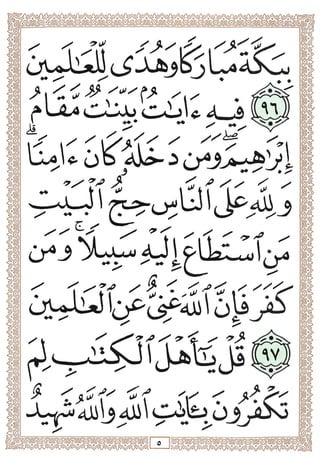 بِبَكَّةَ مُبَارَكًا وَهُدًى لِّلْعَـٰلَمِينَ
٩٦ فِيهِ ءَايَـٰتٌۢ بَيِّنَـٰتٌ مَّقَامُ
إِبْرَٰهِيمَ ۖ وَمَن دَخَلَهُۥ كَانَ ءَامِنًا ۗ
وَلِلَّهِ عَلَى ٱلنَّاسِ حِجُّ ٱلْبَيْتِ
مَنِ ٱسْتَطَاعَ إِلَيْهِ سَبِيلًا ۚ وَمَن
كَفَرَ فَإِنَّ ٱللَّهَ غَنِىٌّ عَنِ ٱلْعَـٰلَمِينَ
٩٧ قُلْ يَـٰٓأَهْلَ ٱلْكِتَـٰبِ لِمَ
تَكْفُرُونَ بِـَٔايَـٰتِ ٱللَّهِ وَٱللَّهُ شَهِيدٌ
٥